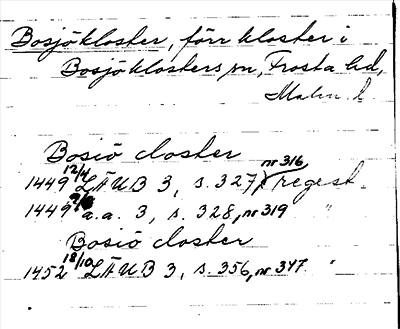 Bosjökloster, förr kloster i
Bosjöklosters sn, Frosta hd,
Malm. l.
Bosiö closter
1449 12/4 LÄUB 3, s. 327, nr 316 regest
1449 a.a. 3, s. 328, nr 319 "
Bosiö closter
1452 18/10 LÄUB 3, s. 356, nr 347. "